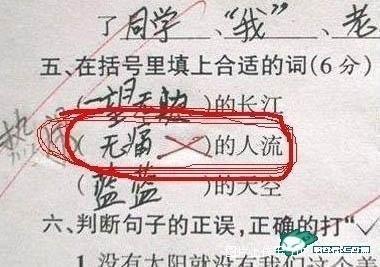 了同学、“我”、老
五、在括号里填上合适的词(6分)
(一望无边)的长江
热闹
(无痛)的人流
(蓝蓝)的天空
六、判断句子的正误,正确的打“✓
1.没有太阳就没有我们这个美